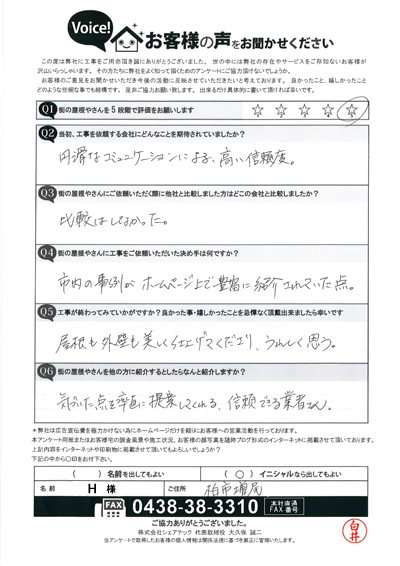 Voice!
お客様の声をお聞かせください
この度は弊社に工事をご用命頂き誠にありがとうございました。世の中には弊社の存在やサービスをご存知ないお客様が
沢山いらっしゃいます。その方たちに弊社をよく知って頂くためのアンケートにご協力頂けないでしょうか。
お客様のご意見をお聞かせいただき今後の活動に反映させていただきたいと考えております。良かったこと、嬉しかったこと
どのような些細な事でも結構です。是非ご協力お願い致します。出来るだけ具体的に書いて頂ければ幸いです。
Q1 街の屋根やさんを5段階で評価をお願いします ☆ ☆ ☆ ☆ ☆
Q2 当初、工事を依頼する会社にどんなことを期待されていましたか?
円滑なコミュニケーションによる、高い信頼度。
Q3 街の屋根やさんにご依頼いただく際に他社と比較しました方はどこの会社と比較しましたか?
比較はしてなかった。
Q4 街の屋根やさんに工事をご依頼いただいた決め手は何ですか?
市内の事例が ホームページ上で豊富に紹介されていた点。
Q5 工事が終わってみていかがですか?良かった事・嬉しかったことを忌憚なく頂戴出来ましたら幸いです
屋根も外壁も美しく仕上げてくださり、うれしく思う。
Q6 街の屋根やさんを他の方に紹介するとしたらなんと紹介しますか?
気づいた点を率直に提案してくれる、信頼できる業者さん。
*弊社は広告宣伝費を極力かけない為にホームページだけを頼りにお客様への営業活動を行っております。
本アンケート用紙またはお客様宅の調査風景や施工状況、お客様の顔写真を随時ブログ形式のインターネットに掲載させて頂いております。
上記内容をインターネットや印刷物に掲載させて頂いてもよろしいでしょうか?
下記の中から〇印をお付下さい。
( ) 名前を出してもよい ( ○ ) イニシャルなら出してもよい
名前 H 様 ご住所 柏市増尾
FAX 0438-38-3310 本社直通 FAX番号
ご協力ありがとうございました。
株式会社シェアテック 代表取締役 大久保 誠二
当アンケートで取得したお客様の個人情報は関係法規に基づき厳正に管理いたします。
白井